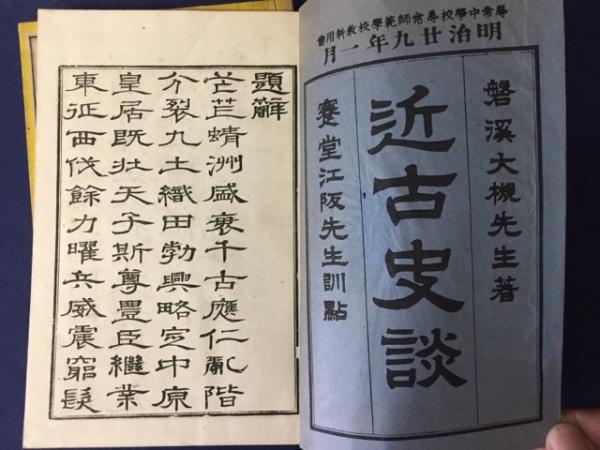 尋常中學校尋常師範學校教科用書
明治廿九年一月
磐溪大槻先生著
近古史談
蹇堂江阪先生訓點
題辭
芒芒蜻洲盛衰千古應仁亂階
分裂九土織田勃興略定中原
皇居既壯天子斯尊豊臣継業
東征西伐餘力曜兵威震窮髮